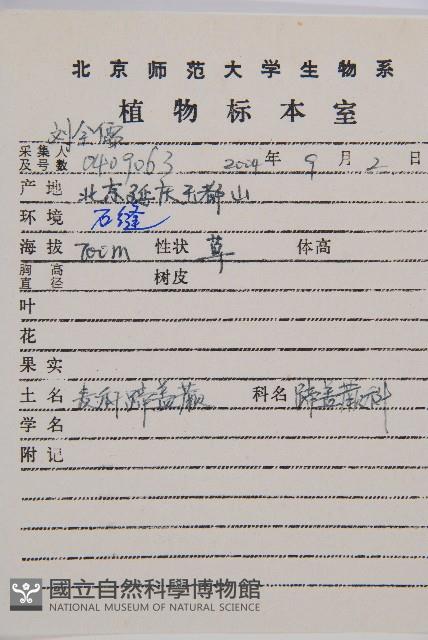 北京师范大学生物系
植物标本室
刘全儒
采集人及号数 0409063 2004年9月2日
产地 北京延庆玉都山
环境 石缝
海拔 700m 性状 草 体高
胸高直径 树皮
叶
花
果实
土名 麦秆蹄盖蕨 科名 蹄盖蕨科
学名
附记
國立自然科學博物館
NATIONAL MUSEUM OF NATURAL SCIENCE